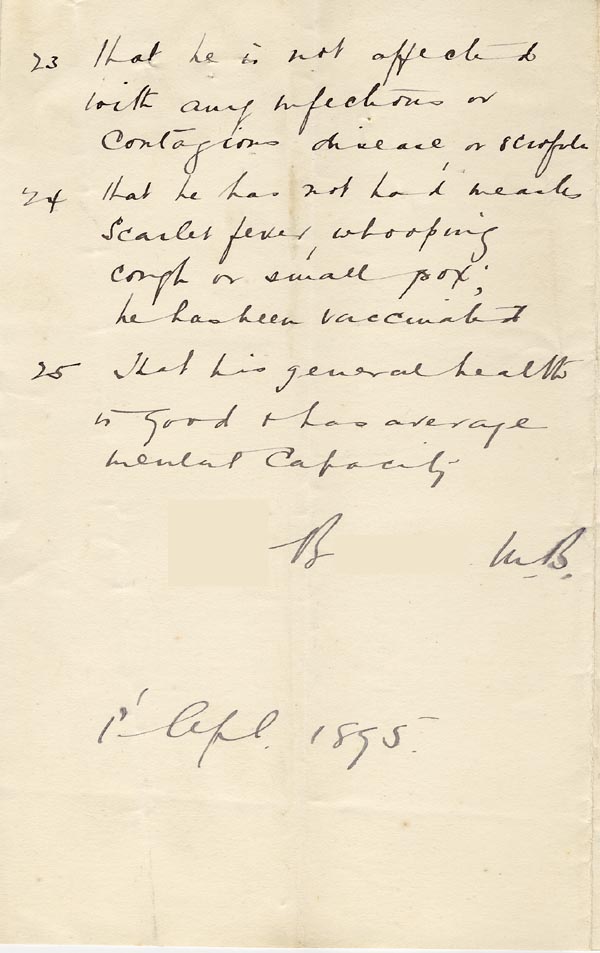 23 that he is not affected
with any infectious or
contagious disease, or scrofula
24 that he has not had measles
Scarlet fever, whooping
cough or small pox;
he has been vaccinated
25 That his general health
is good & has average
mental capacity
B M.B.
1' Apl. 1895.